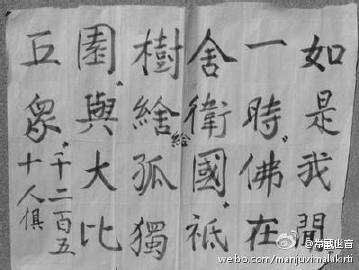 如是我聞
一時佛在
舍衛國祇
樹給孤獨
園與大比
丘眾千二百五
十人俱
weibo.com/manjuvimalakirti